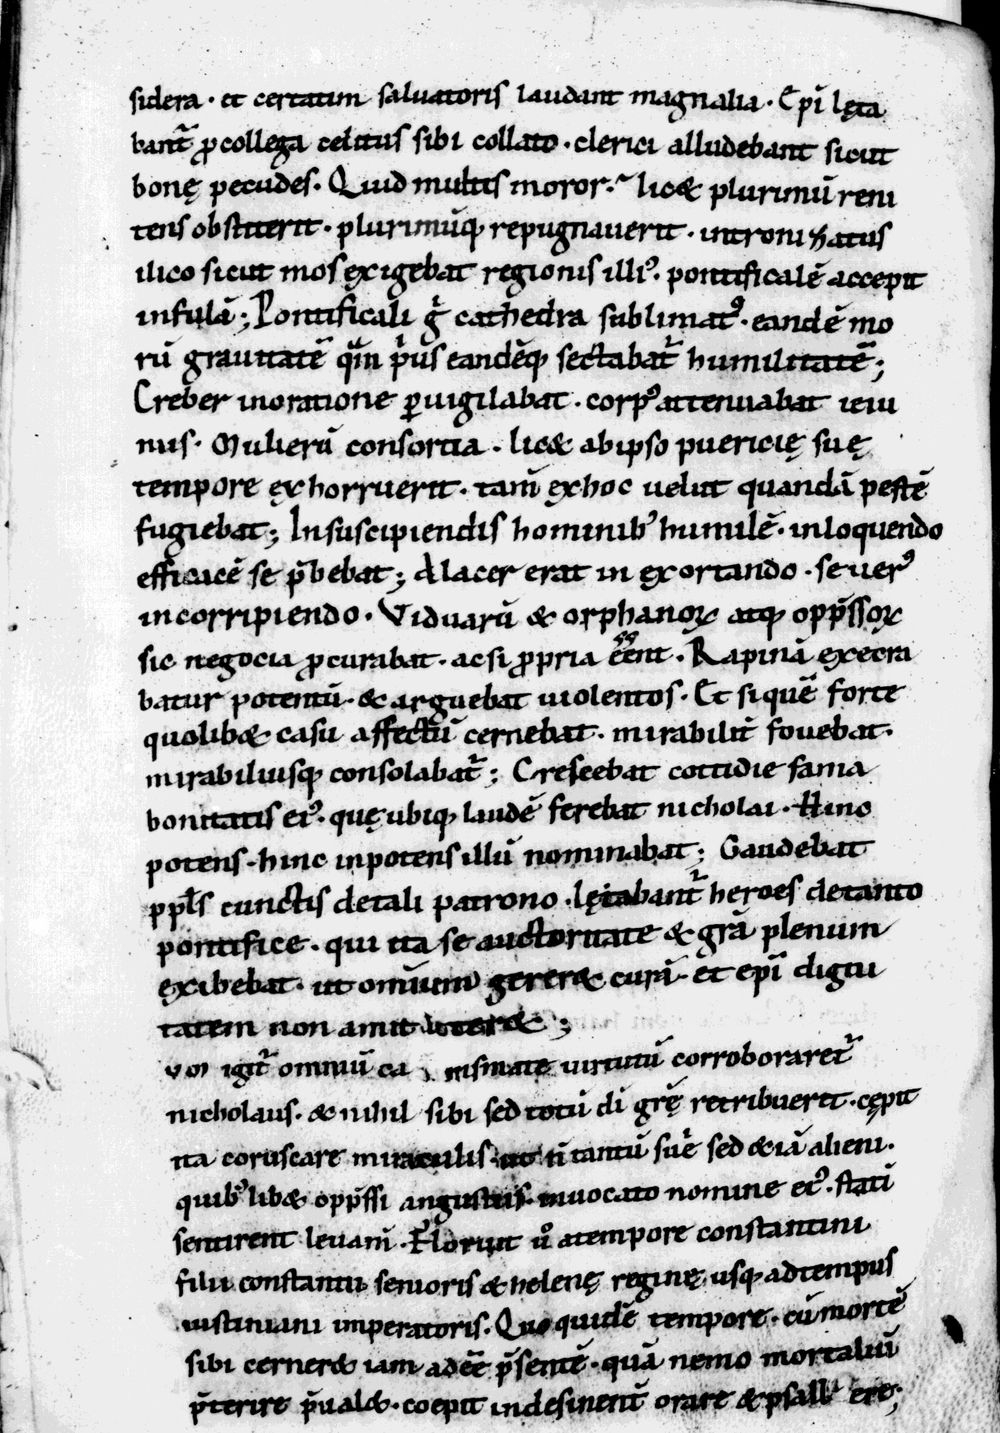 sidera · et certatim salvatoris laudant magnalia · Ep̅i lęta
bant̅ p̲collega celitus sibi collato · clerici alludebant sicut
bonę pecudes · Quid multis moror · lic& plurimū reni
tens obstiterit · plurimūq; repugnaverit · intronizatus
ilico sicut mos exigebat regionis illiꝰ · pontificalē accepit
infulā ; Pontificali g̅ cathedra sublimatꝰ · eandē mo
rū gravitatē q̅m p̅us eandēq; sectabat̅ humilitatē ;
Creber in oratione ꝑvigilabat · corpꝰ attenuabat ieiu
nus · Mulierū consortia · lic& ab ipso puericię suę
tempore ęxhorruerit · tam̅ ęx hoc velut quandā pestē
fugiebat ; In suscipiendis hominibꝰ humilē · in loquendo
efficacē se p̅bebat ; Alacer erat in exortando · severꝰ
in corripiendo · Viduarū & orphanoꝝ atq; opp̅ssoꝝ
sic negocia ꝓcurabat · ac si ꝓpria ēēnt · Rapinā execra
batur potentū · & arguebat violentos · Et si quē forte
quolib& casu affectū cernebat · mirabilit̅ fovebat ·
mirabiliusq; consolabat̅ ; Crescebat cottidie fama
bonitatis eiꝰ · quę ubiq; laudē ferebat nicholai · Hinc
potens · hinc inpotens illū nominabat ; Gaudebat
ppl̅s cunctis de tali patrono · lętabant̅ heroes de tanto
pontifice · qui ita se auctoritate & gr̅a plenum
exibebat · ut omium gerer& curā · et ep̅i digni
tatem non amitter& ;
igit̅ omniū virtutū corroboraret̅
nicholaus · & nihil sibi sed totū di̅ gr̅ę retribuerit · cępit
ita coruscare miraculis · ut n̅ tantū sui̅ sed &iā alieni ·
quibꝰlib& opp̅ssi angustiis · invocato nomine eiꝰ · statī
sentirent levam̅ · Floruit v̊ a tempore constantini
filii constantii senioris & helenę reginę usq; ad tempus
iustiniani imperatoris · Quo quidē tempore · cū mortē
sibi cerner& iam adee̅ p̅sentē · quā nemo mortaliū
p̅terire p̅val& · coepit indesinent̅ orare & psallere ;